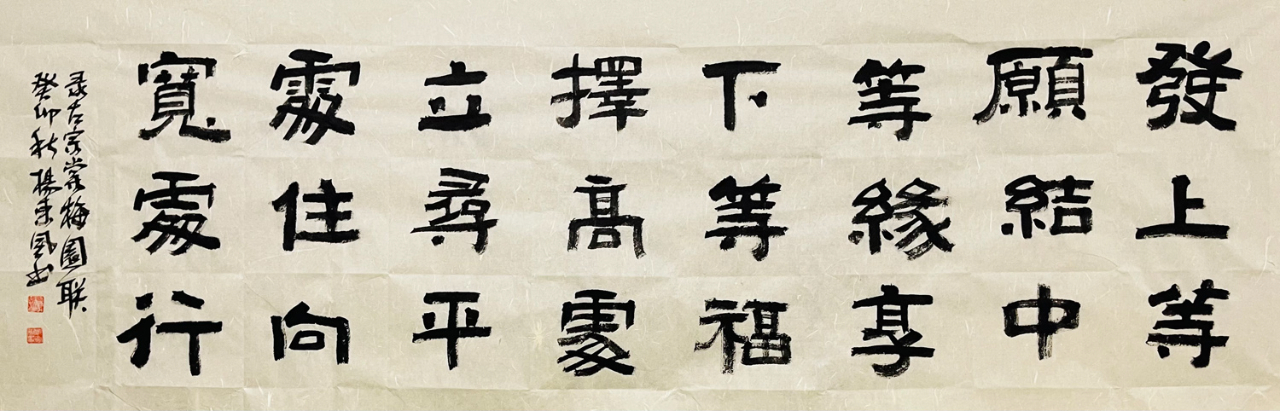 發上等
願結中
等緣享
下等福
擇高處
立尋平
處住向
寬處行
录左宗棠梅園联
癸卯秋楊東風书